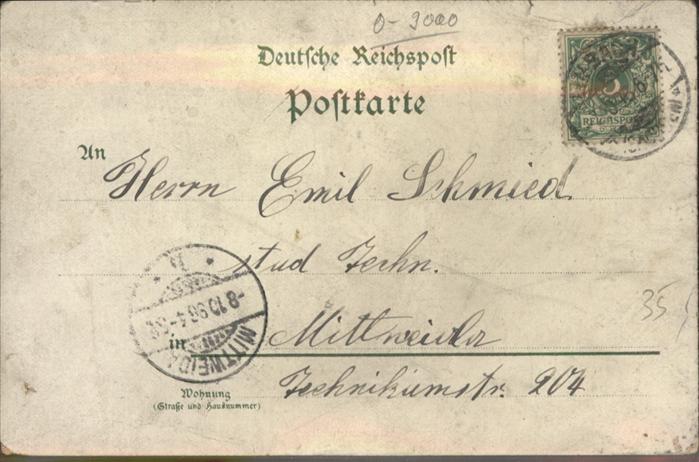 0-9000
Deutsche Reichspost
Postkarte
5
REICHSPOST
An
Herrn Emil Schmied
stud Techn.
-8.10.96.4-
MITTWEIDA
35
in Mittweida
Technikumstr. 204
Wohnung
(Straße und Hausnummer)